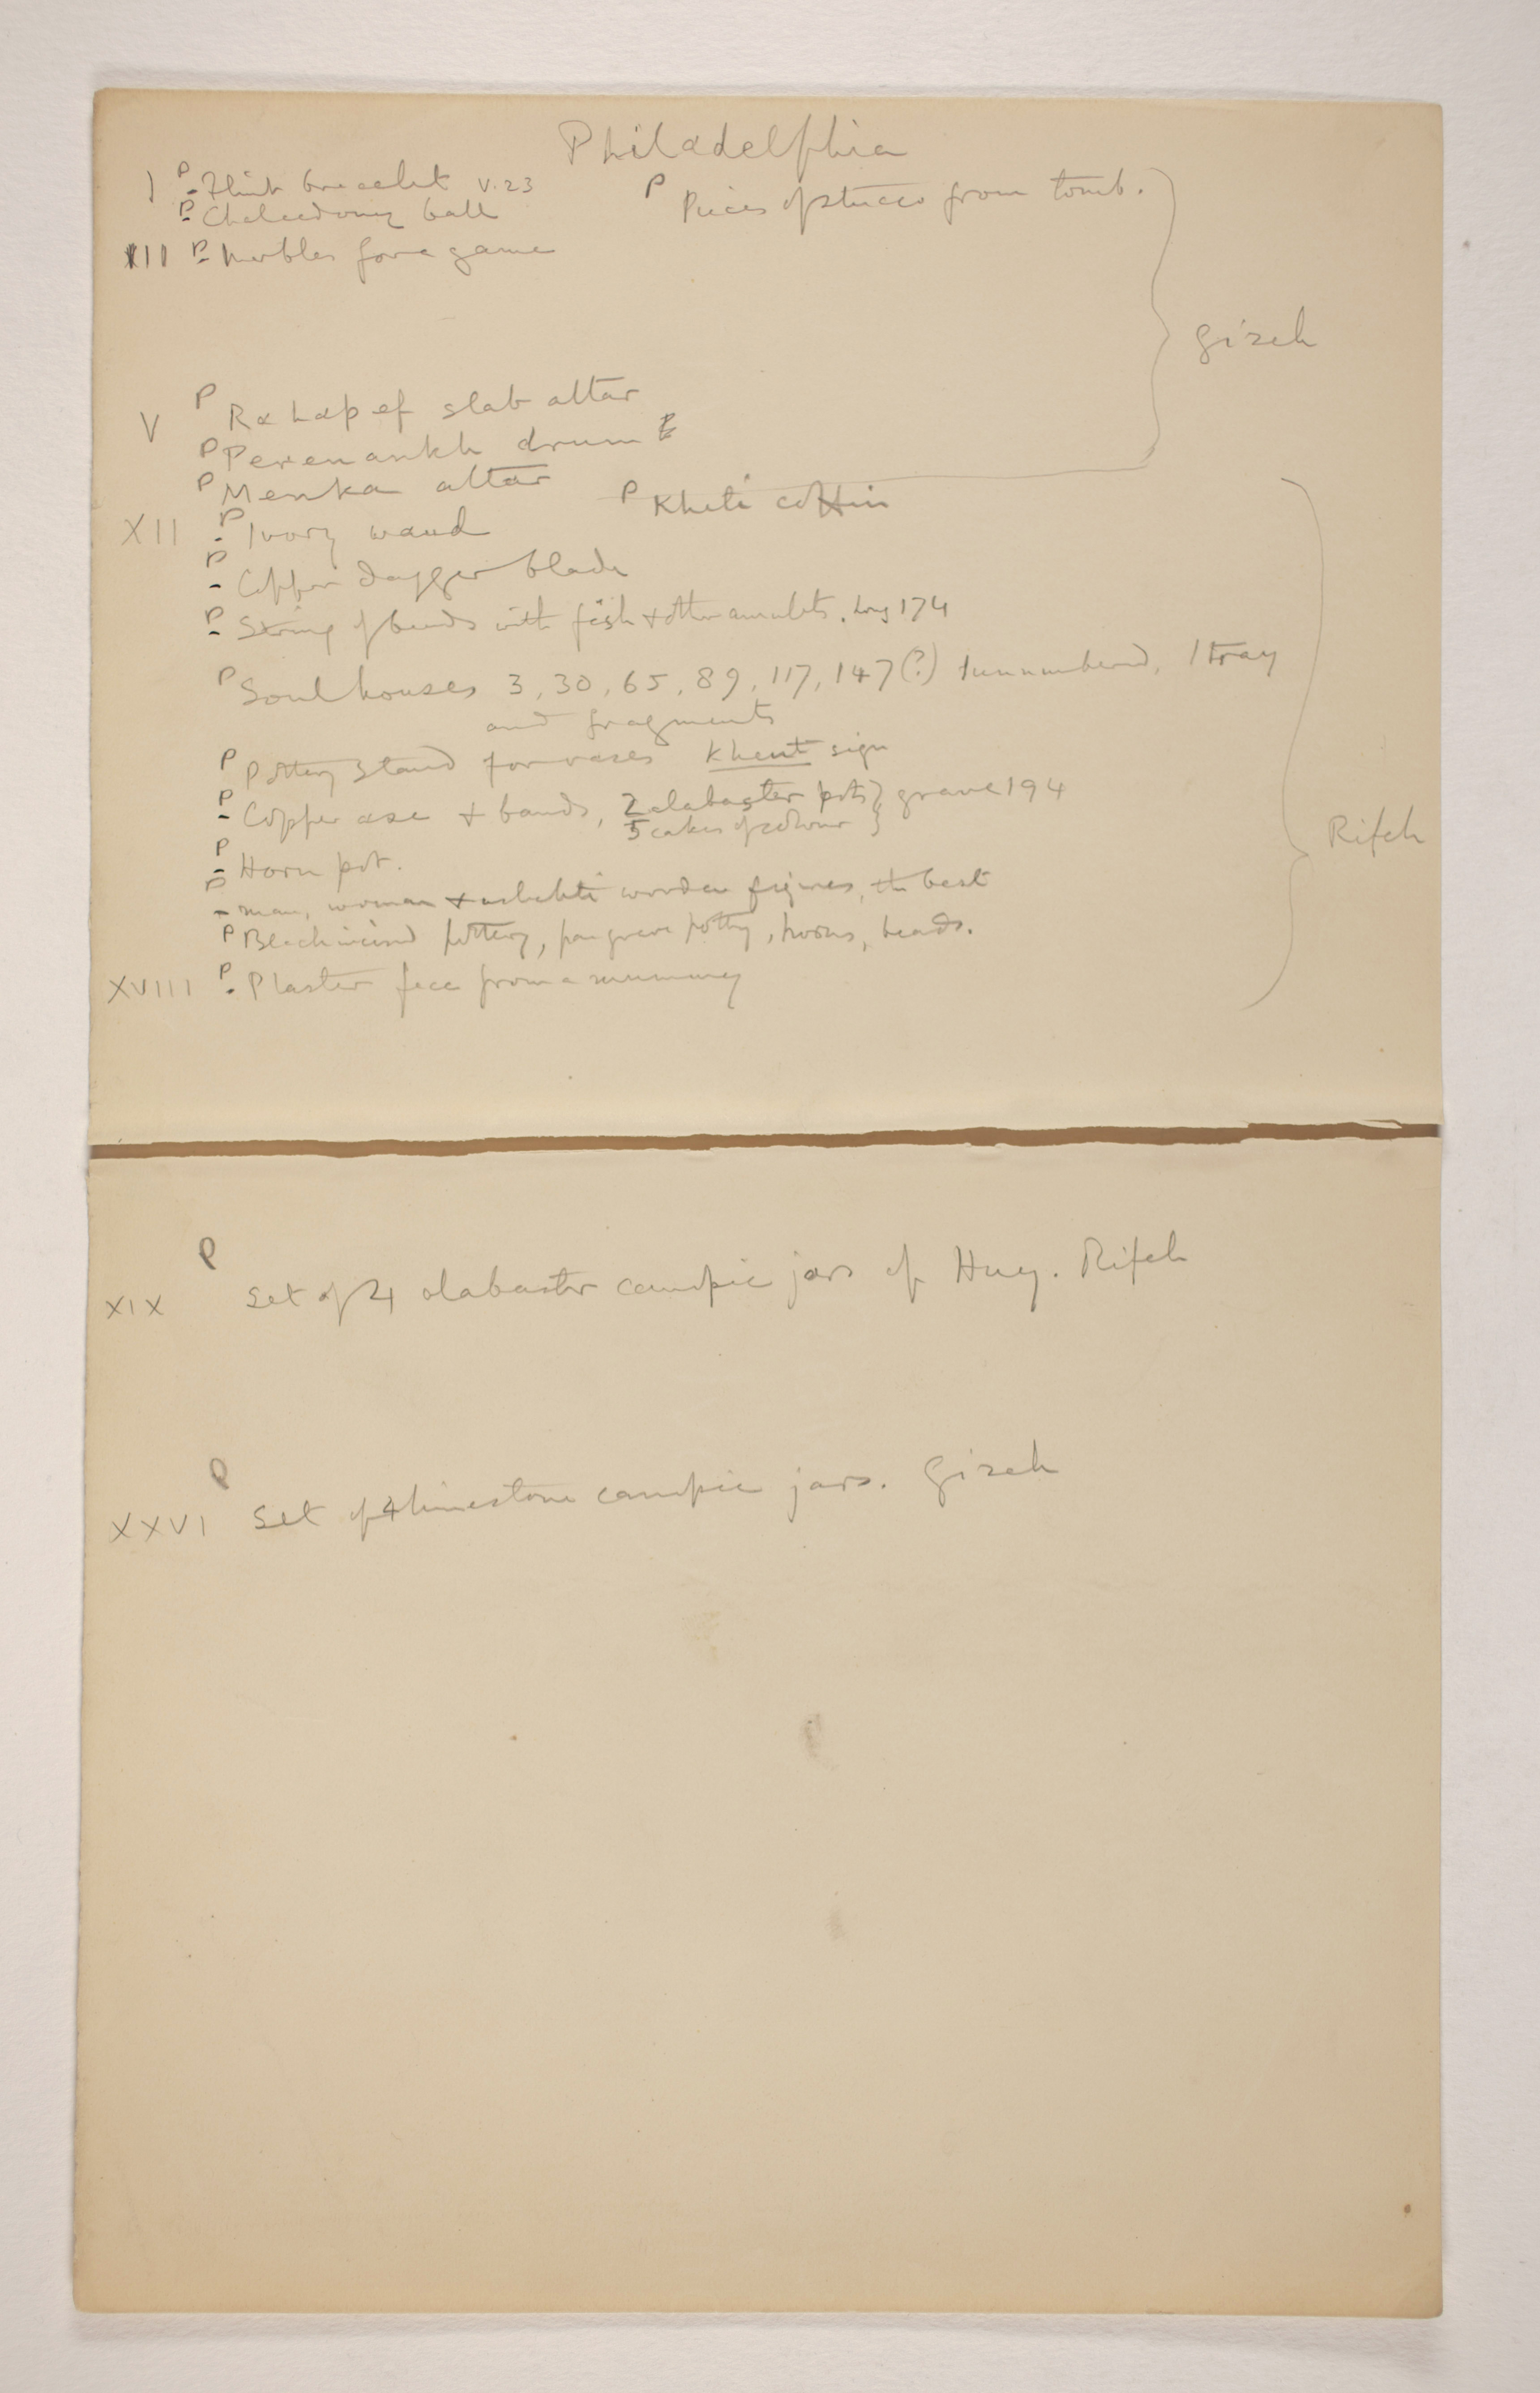 Philadelphia
I P - Flint bracelet V.23
P Pieces of stucco from tomb.
P - Chalcedony ball
III P - Marbles for a game
Gizeh
V P Rahapef slab altar
P Perenankh drum
P Menka altar
P Kheti coffin
XII P - Ivory wand
P - Copper dagger blade
P - String of beads with fish + other amulets. 174
P Soul houses 3, 30, 65, 89, 117, 147(?) 1 unnumbered, 1 tray
and fragments
P Pottery stand for vases Khent sign
P - Copper axe + bands, 2 alabaster pots } grave 194
5 cakes of colour }
Rifeh
P - Horn pot.
P - man, woman + ushabti wooden figures, the best
P Black incised pottery, pan grave pottery, horns, beads.
XVIII P - Plaster face from a mummy
P
XIX Set of 4 alabaster canopic jars of Huy. Rifeh
P
XXVI Set of 4 limestone canopic jars. Gizeh